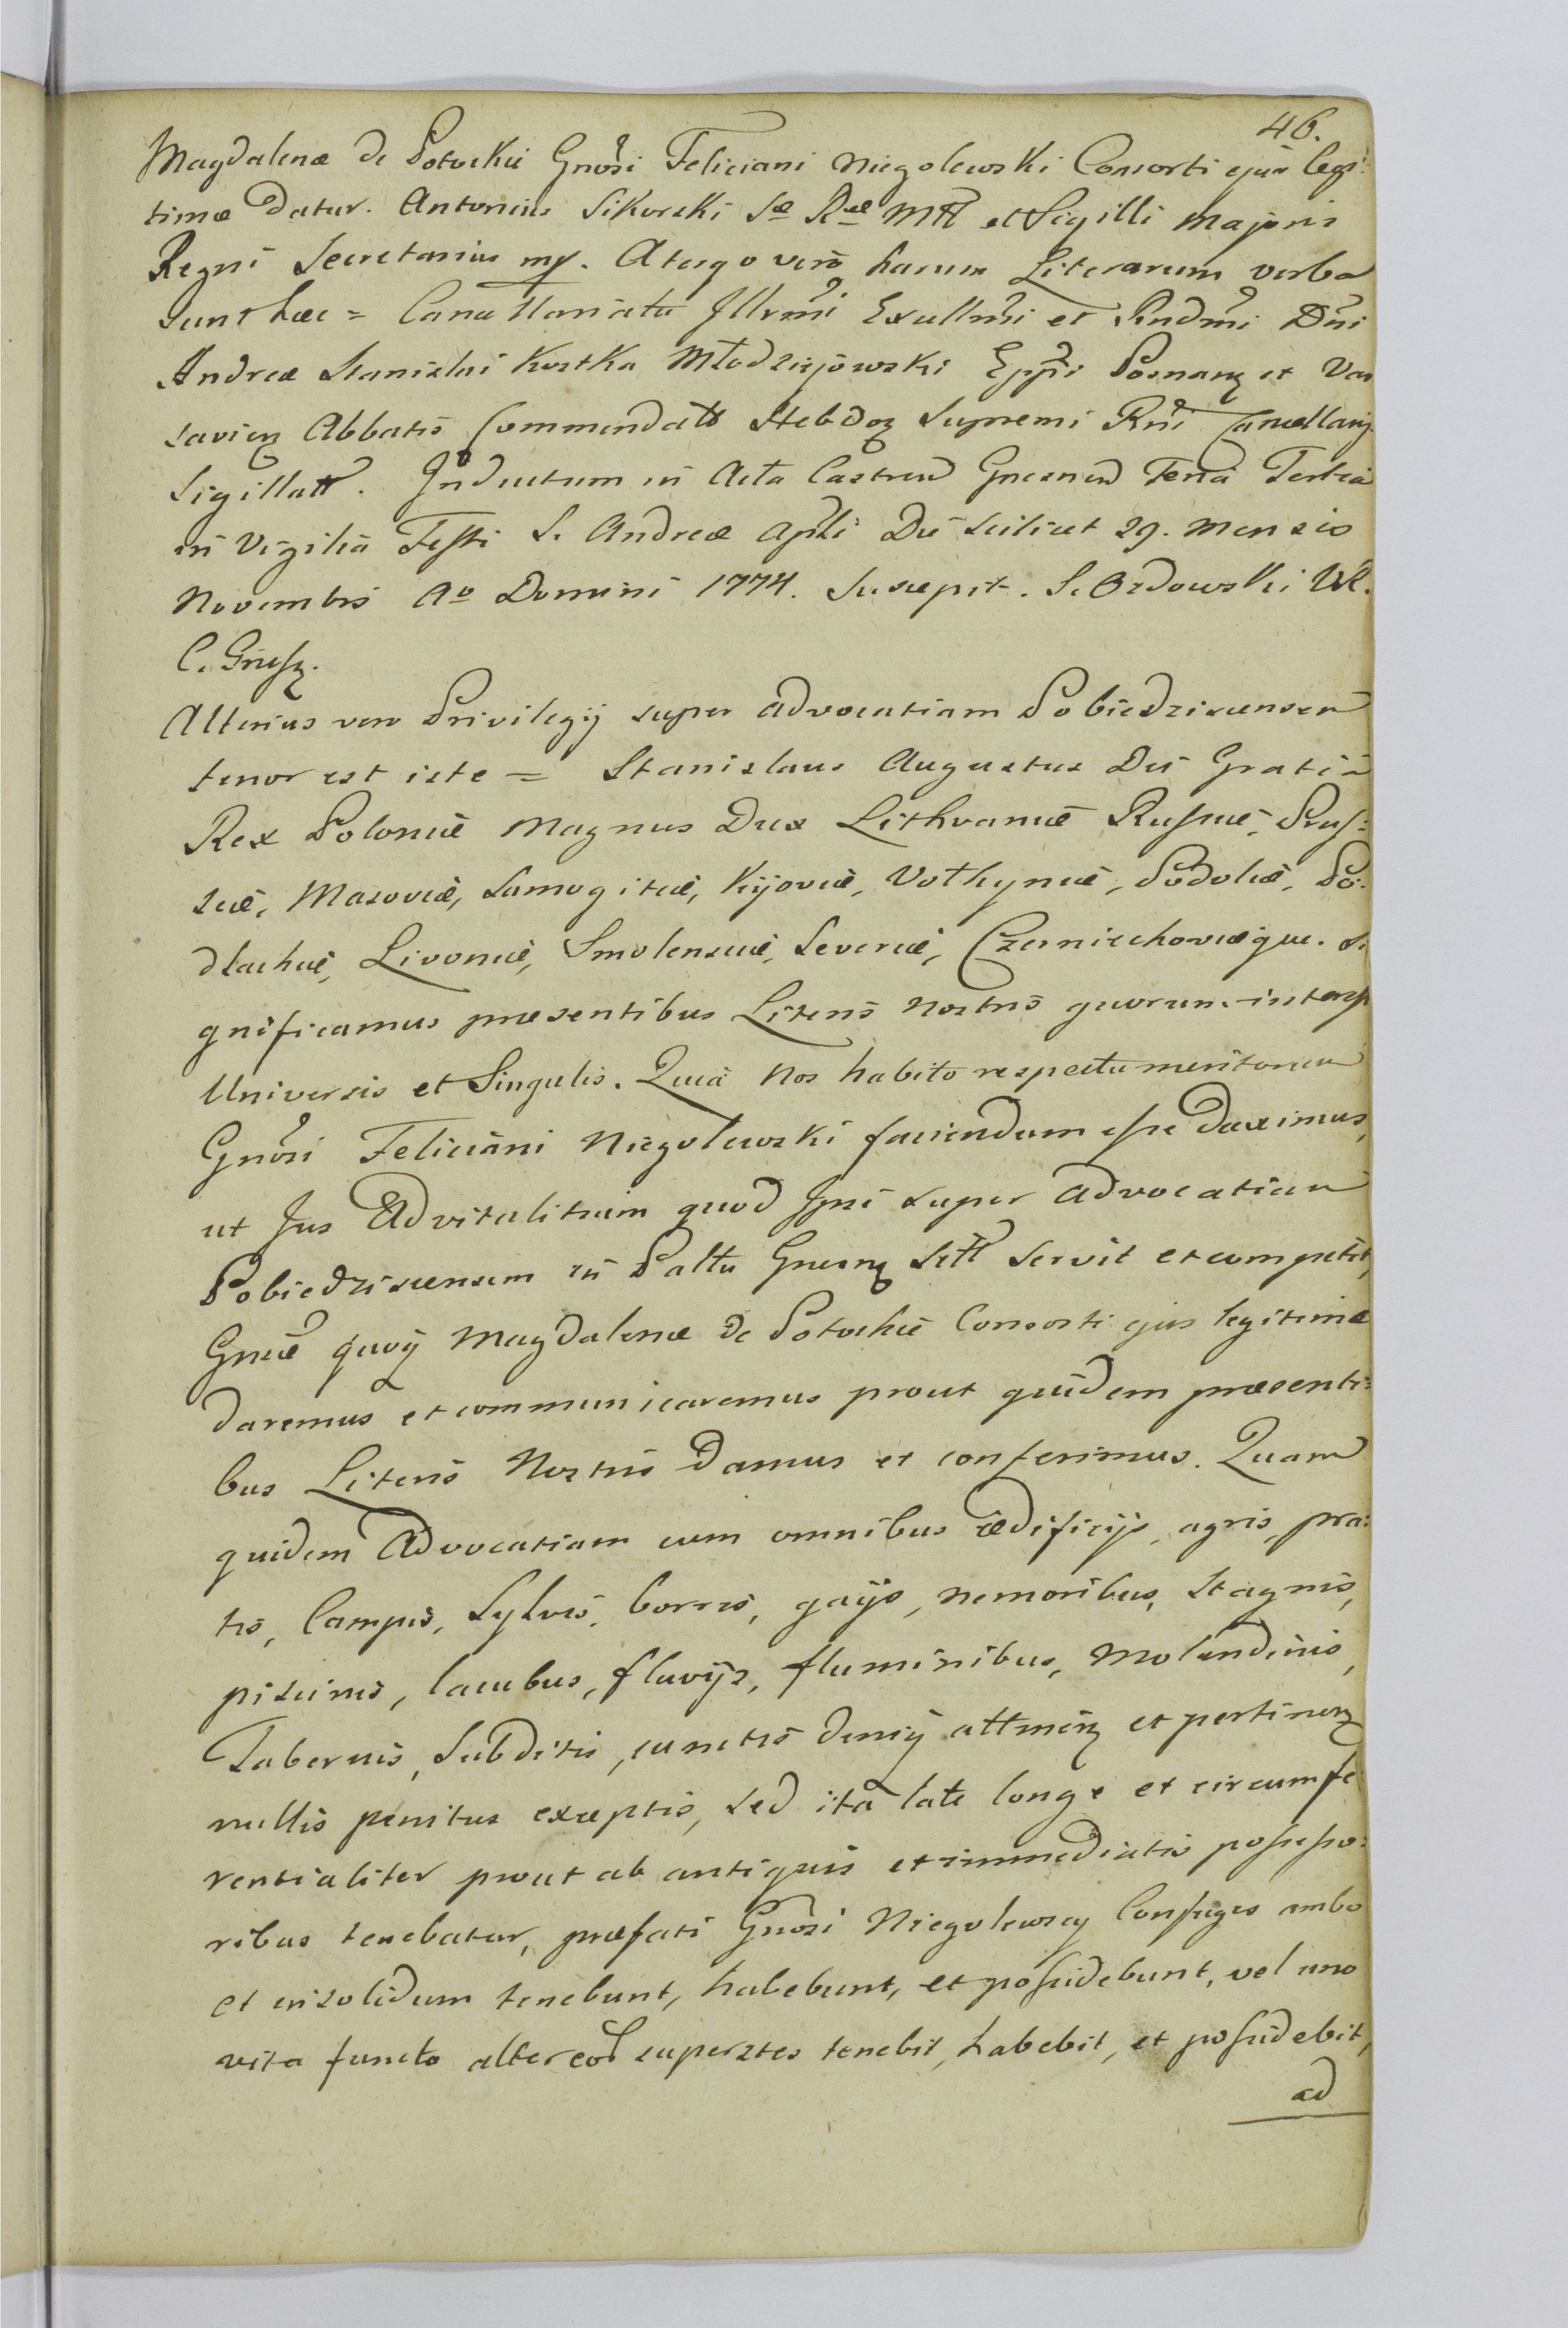 46.
Magdalenæ de Potockie Gnosi Feliciani Niegolewski Consorti ejus legi:
timæ datur. Antonius Sikorski Sæ Ræ Mtt et Sigilli Majoris
Regni Secretarius mp. A tergo vero harum Literarum verba
sunt hæc = Cancellariatu Illrmi Excellmi et Rndmi Dni
Andreæ Stanislai Kostka Młodziejowski Eppi Posnanz et Var
savienz Abbatis Commendatt Hebdoz Supremi Rni Cancellarij
Sigillatt. Inductum in Acta Castren Gnesnen Feria Tertia
in Vigilia Festi S. Andreæ Apli Die scilicet 29. Mensis
Novembris Ao Domini 1774. Suscepit. S. Ordowski VR.
C. Gnesz.
Alterius vero Privilegij super Advocatiam Pobiedziscensem
tenor est iste = Stanislaus Augustus Dei Gratia
Rex Poloniæ Magnus Dux Lithvaniæ Russiæ, Prus:
siæ, Masoviæ, Samogitiæ, Kijoviæ, Volhyniæ, Podoliæ, Po:
dlachiæ, Livoniæ, Smolensciæ, Severiæ, Czerniechoviæque. Si
gnificamus præsentibus Literis Nostris quorum interest
Universis et Singulis. Quia Nos habito respectu meritorum
Gnosi Feliciani Niegolewski faciendum esse duximus,
ut Jus Advitalitium quod Ipsi super Advocatiam
Pobiedziscensem in Palttu Gnesnz Sitt servit et competit,
Gnsæ quoq Magdalenæ de Potockie Consorti ejus legitimæ
daremus et communicaremus prout quidem præsenti:
bus Literis Nostris damus et conferimus. Quam
quidem Advocatiam cum omnibus ædificijs, agris, pra:
tis, Campis, Sylvis, borris, gajis, nemoribus, stagnis,
piscinis, lacubus, fluvijs, fluminibus, Molendinis,
Tabernis, Subditis, cunctis deniq attinenz et pertinenz
nullis penitus exceptis, sed ita late longe et circumfe
rentialiter prout ab antiquis et immediatis possesso:
ribus tenebatur, præfati Gnosi Niegolewscy Conjuges ambo
et insolidum tenebunt, habebunt, et possidebunt, vel uno
vita functo alter eor superstes tenebit, habebit, et possidebit,
ad